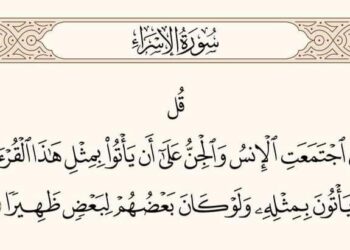 سُورَةُ الإِسْرَاءِ
قُل
ٱجْتَمَعَتِ ٱلْإِنسُ وَٱلْجِنُّ عَلَىٰٓ أَن يَأْتُوا۟ بِمِثْلِ هَٰذَا ٱلْقُرْءَ
يَأْتُونَ بِمِثْلِهِۦ وَلَوْ كَانَ بَعْضُهُمْ لِبَعْضٍ ظَهِيرًا